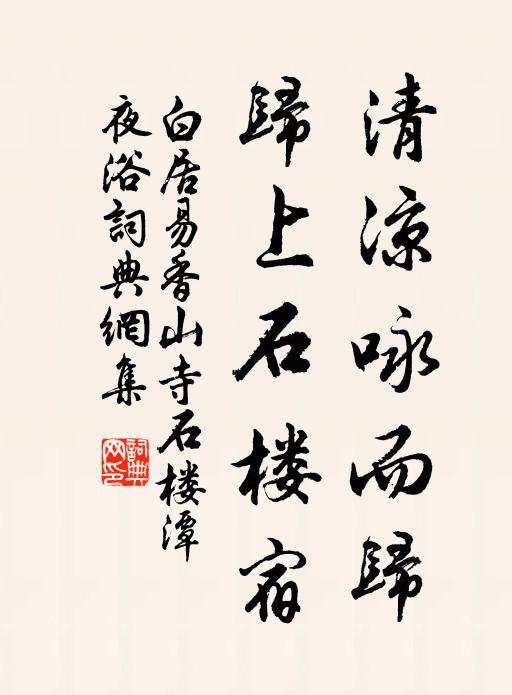 清涼咏而歸
歸上石楼宿
白居易香山寺石楼潭
夜浴詞典網集
詞典网印